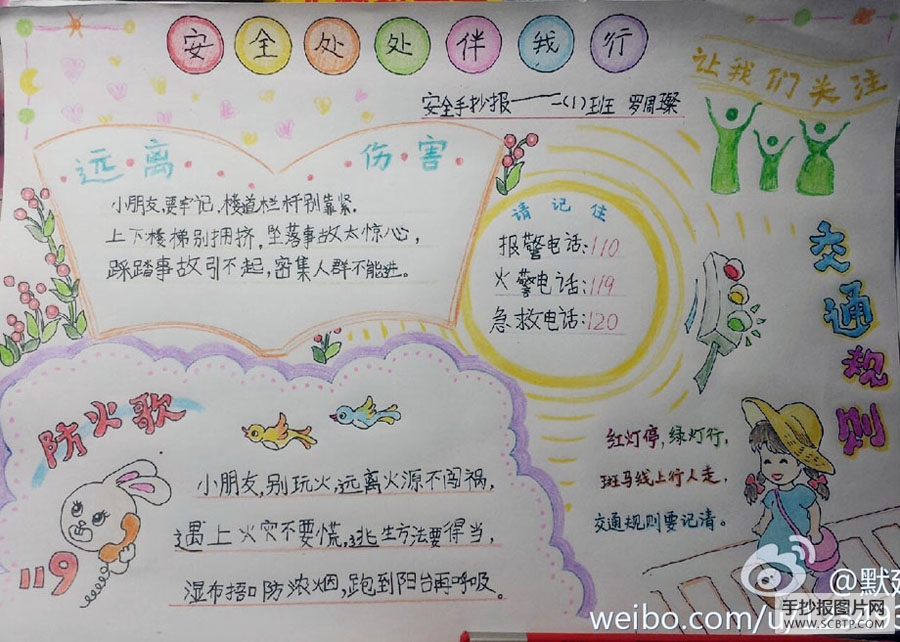 安全处处伴我行
安全手抄报——一(1)班 罗周璨
让我们关注
远离 伤害
小朋友,要牢记,楼道栏杆别靠紧.
上下楼梯别拥挤,坠落事故太惊心,
踩踏事故引不起,密集人群不能进。
请记住
报警电话:110
火警电话:119
急救电话:120
交通规则
防火歌
小朋友,别玩火,远离火源不闯祸,
遇上火灾不要慌,逃生方法要得当,
湿布捂口防浓烟,跑到阳台再呼吸。
119
红灯停,绿灯行,
斑马线上行人走,
交通规则要记清。
手抄报图片网
WWW.SCBTP.COM